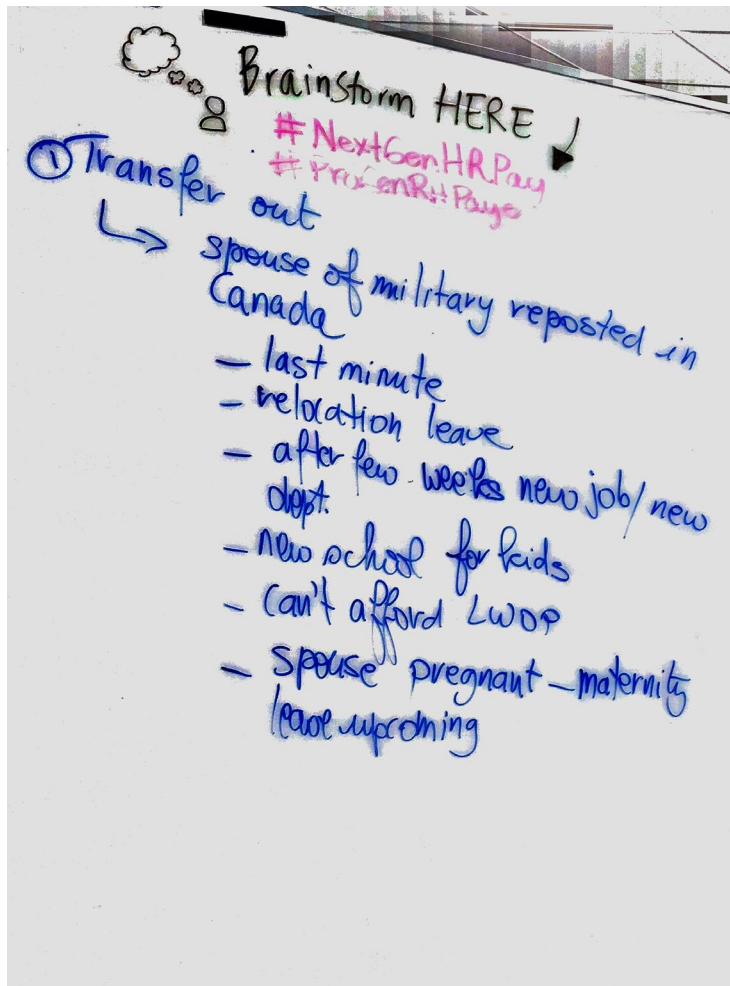 Brainstorm HERE
#NextGenHRPay
#ProxGenRHPaye
① Transfer out
↳ spouse of military reposted in
Canada
- last minute
- relocation leave
- after few weeks new job/new
dept.
- new school for kids
- Can't afford LWOP
- spouse pregnant - maternity
leave upcoming